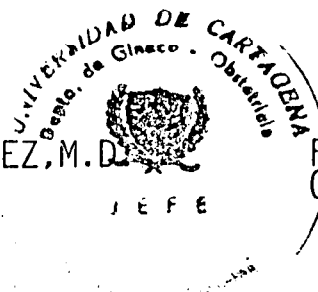 UNIVERSIDAD DE CARTAGENA
Depto. de Gineco - Obstetricia
EZ, M.D.
JEFE